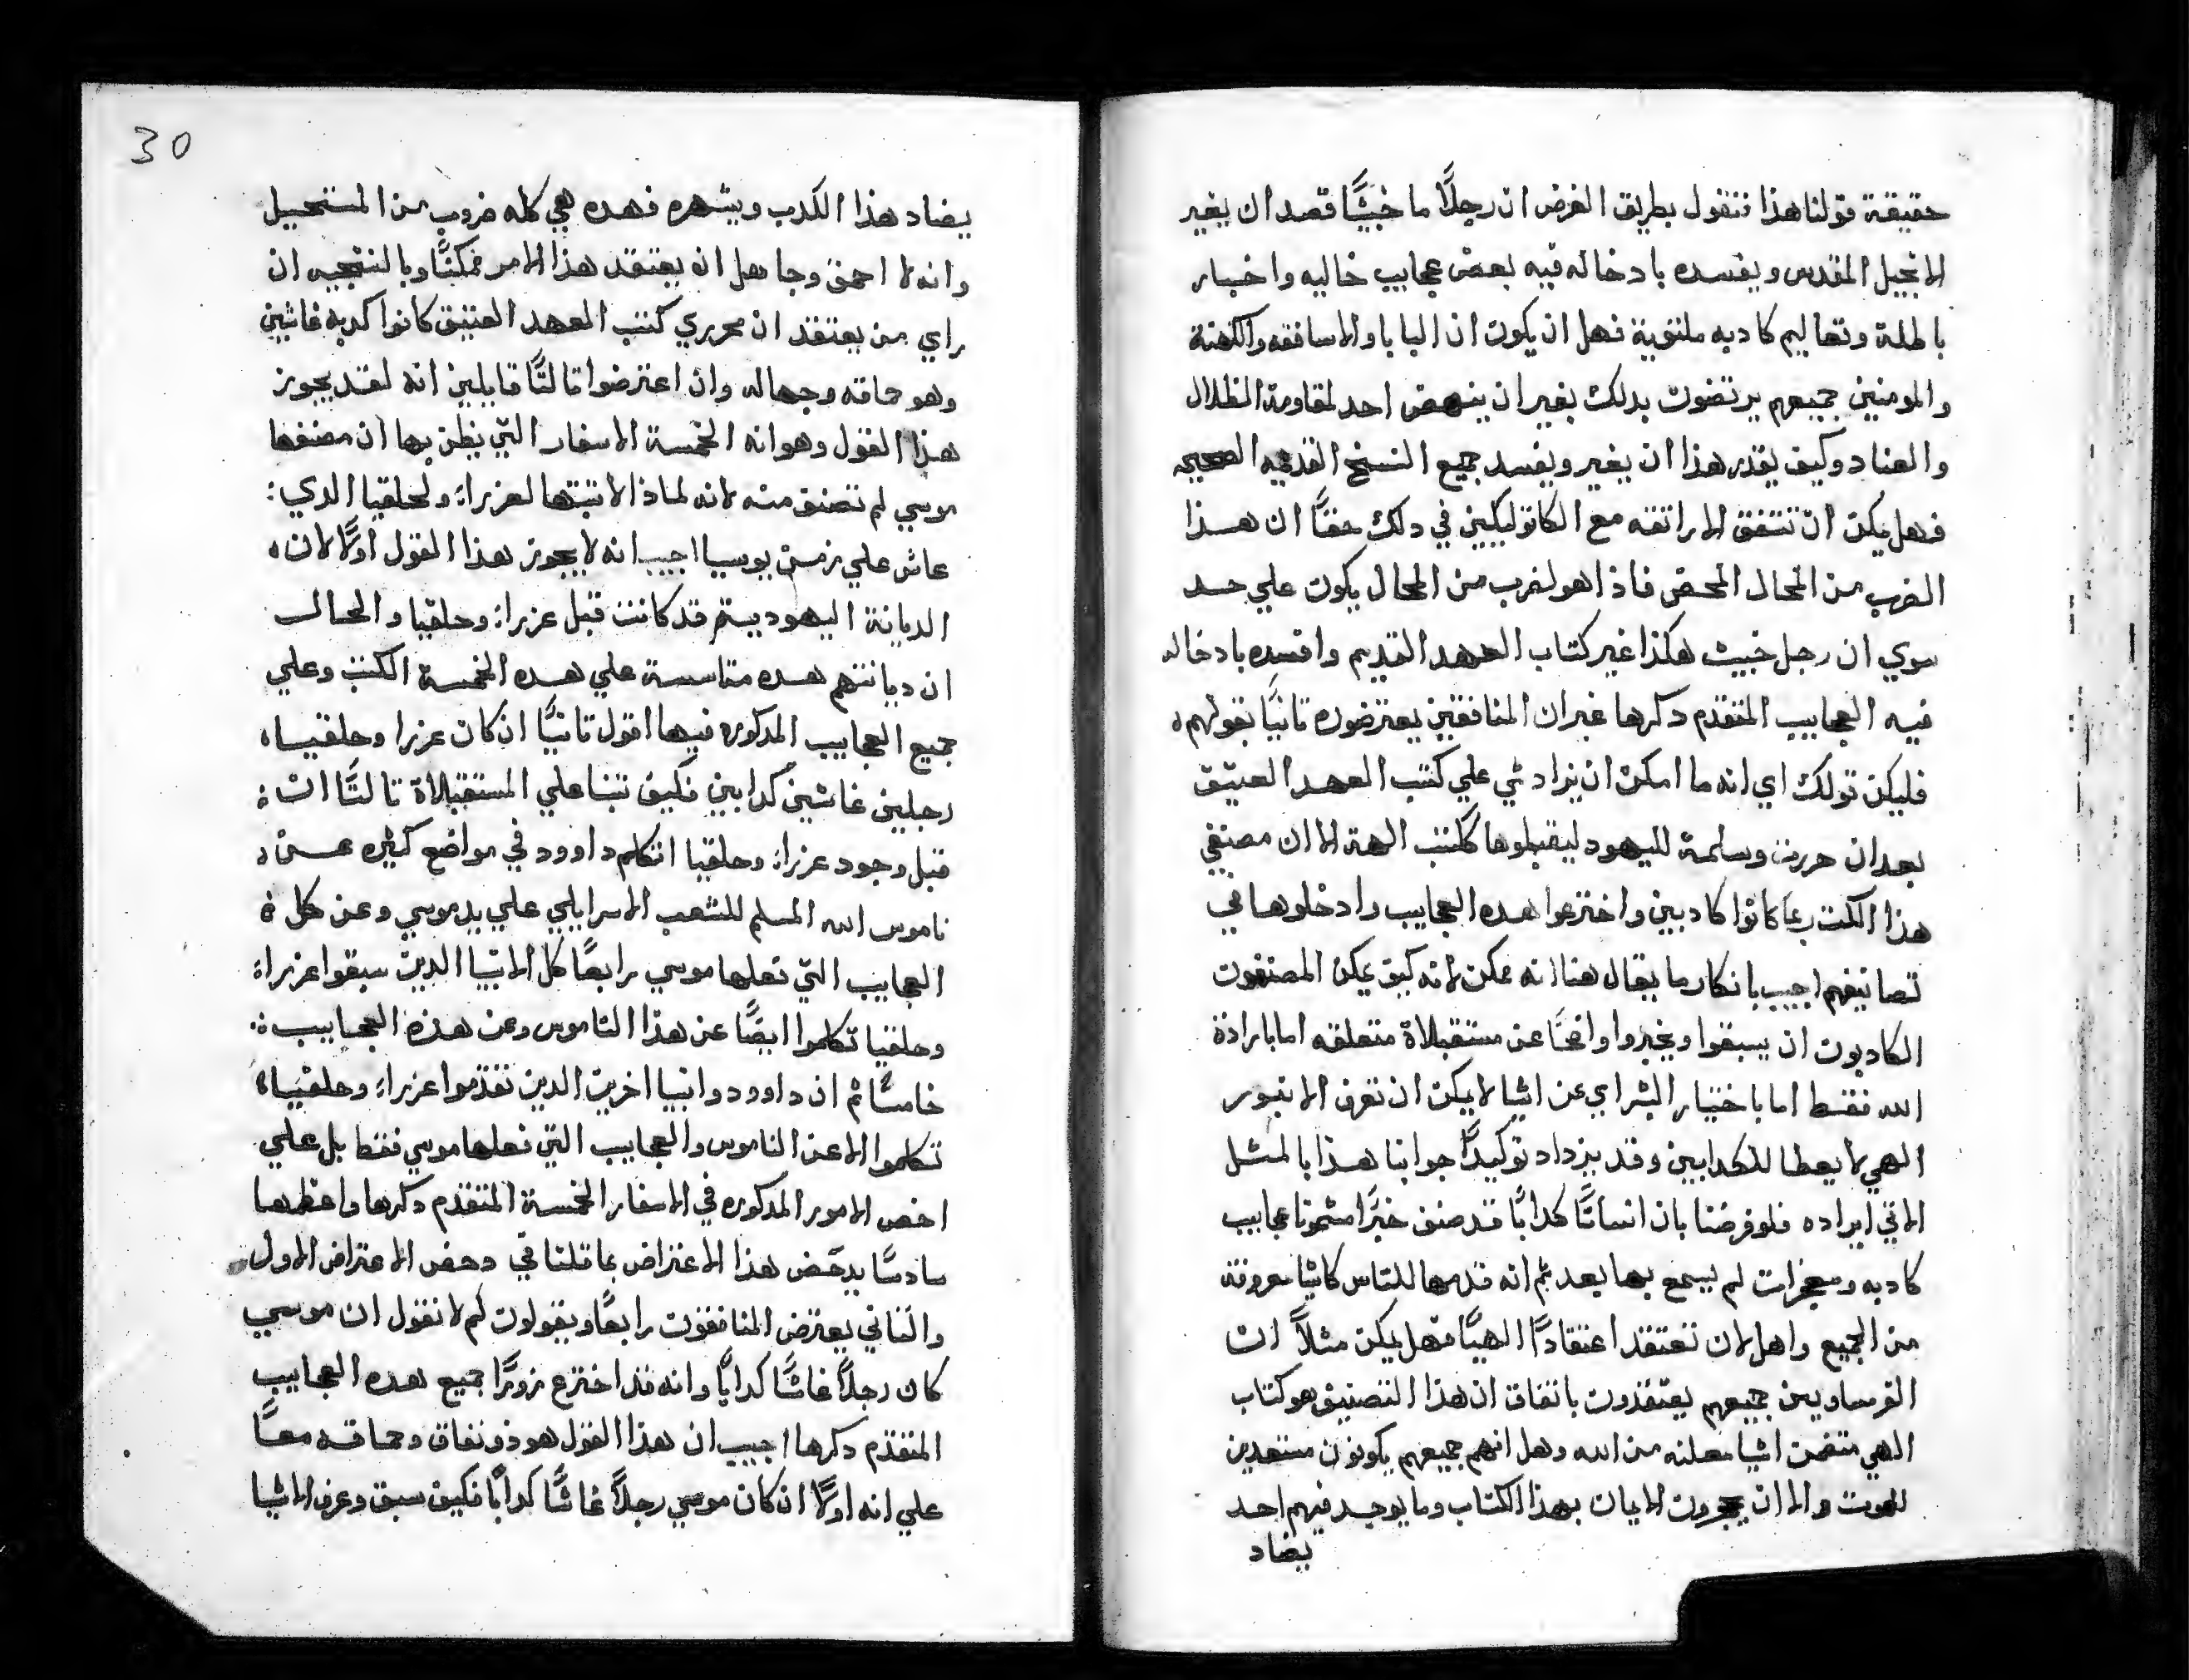 حقيقة قولنا هذا فنقول بطريق الفرض ان رجلًا ما خبيثًا قصد ان يغير
الانجيل المقدس ويفسده بادخاله فيه بعض عجايب خاليه واخبار
باطلة وتعاليم كادبه ملتوية فهل ان يكون ان البابا والاساقفه والكهنة
والمومنين جميعهم يرتضون بدلك بغير ان ينهض احد لمقاومة الظلال
والعناد وكيف يقدر هذا ان يغير ويفسد جميع النسخ القديمه الصحيحه
فهل يمكن ان تتفق الاراتقه مع الكاتوليكيين في دلك حقًا ان هذا
الضرب من المحال المحض فاذا هو لضرب من المحال يكون علي حد
سوي ان رجل خبيث هكذا غير كتاب العهد القديم وافسده بادخاله
فيه العجايب المتقدم دكرها غير ان المنافقين يعترضون تانيًا بقولهم
فليكن قولك اي انه ما امكن ان يزاد شي علي كتب العهد العتيق
بعد ان حررت وسلمة لليهود ليقبلوها ككتب الهة الا ان مصنفي
هذا الكتب ربما كانوا كادبين واخترعوا هده العجايب وادخلوها في
تصانيفهم اجيب بانكار ما يقال هنا انه ممكن لانه كيف يمكن المصنفون
الكادبون ان يسبقوا ويخبروا واضحًا عن مستقبلاة متعلقه اما بارادة
الله فقط اما باختيار البشر اي عن اشيا لا يمكن ان تعرف الا بنور
الهي لا يعطا للكدابين وقد يزداد توكيدًا جوابنا هذا بالمثل
الاتي ايراده فلو فرضنا بان انسانًا كدابًا قد صنف خبرًا مشحونًا عجايب
كادبه ومعجزات لم يسمع بها بعد ثم انه قدمها للناس كاشيا معروفة
من الجميع واهل لان تعتقد اعتقادًا الهيًا فهل يمكن مثلًا ان
الفرنساويين جميعهم يعتقدون باتفاق ان هذا التصنيف هو كتاب
الهي متضمن اشيا معلنه من الله وهل انهم جميعهم يكونون مستعدين
للموت والا ان يجحرون الايمان بهذا الكتاب وما يوجد فيهم احد
يضاد
30
يضاد هذا الكدب ويشهره فهده هي كله ضروب من المستحيل
وانه لا احمق وجاهل ان يعتقد هذا الامر ممكنًا وبالنتيجيه ان
راي من يعتقد ان محرري كتب العهد العتيق كانوا كدبه غاشين
وهو حماقه وجهاله وان اعترضوا تالتًا قايلين انه لقد يجوز
هذا القول وهو انه الخمسة الاسفار التي يظن بها ان مصنفها
موسي لم تصنف منه لانه لماذا لا تبتها لعزرا: ولحلقيا الدي:
عاش علي زمن يوسيا اجيب انه لا يجوز هذا القول اولًا لان
الديانة اليهوديتم قد كانت قبل عزرا: وحلقيا والحال
ان ديانتهم هده متاسسة علي هده الخمسة الكتب وعلي
جميع العجايب المدكوره فيها اقول تانيًا ان كان عزرا وحلقيا
رجلين غاشين كدابين فكيف تنبا علي المستقبلاة تالتًا ان
قبل وجود عزرا: وحلقيا اتكلم داوود في مواضع كثيره عن
ناموس الله المسلم للشعب الاسرايلي علي يد موسي وعن كل
العجايب التي فعلها موسي رابعًا كل الانبيا الدين سبقوا عزرا:
وحلقيا تكلموا ايضًا عن هذا الناموس وعن هذه العجايب
خامسًا ثم ان داوود وانبيا اخرين الدين تقدموا عزرا: وحلقيا
تكلموا الا عن الناموس والعجايب التي فعلها موسي فقط بل علي
اخص الامور المدكوره في الاسفار الخمسة المتقدم دكرها واعظمها
سادسًا يدحض هذا الاعتراض بما قلنا في دحض الاعتراض الاول
والتاني يعترض المنافقون رابعًا ويقولون لم لا نقول ان موسي
كان رجلًا غاشًا كدابًا وانه قد اخترع زورًا جميع هده العجايب
المتقدم دكرها اجيب ان هذا القول هو ذو نفاق وحماقه معًا
علي انه اولًا ان كان موسي رجلًا غاشًا كدابًا فكيف سبق وعرف الاشيا